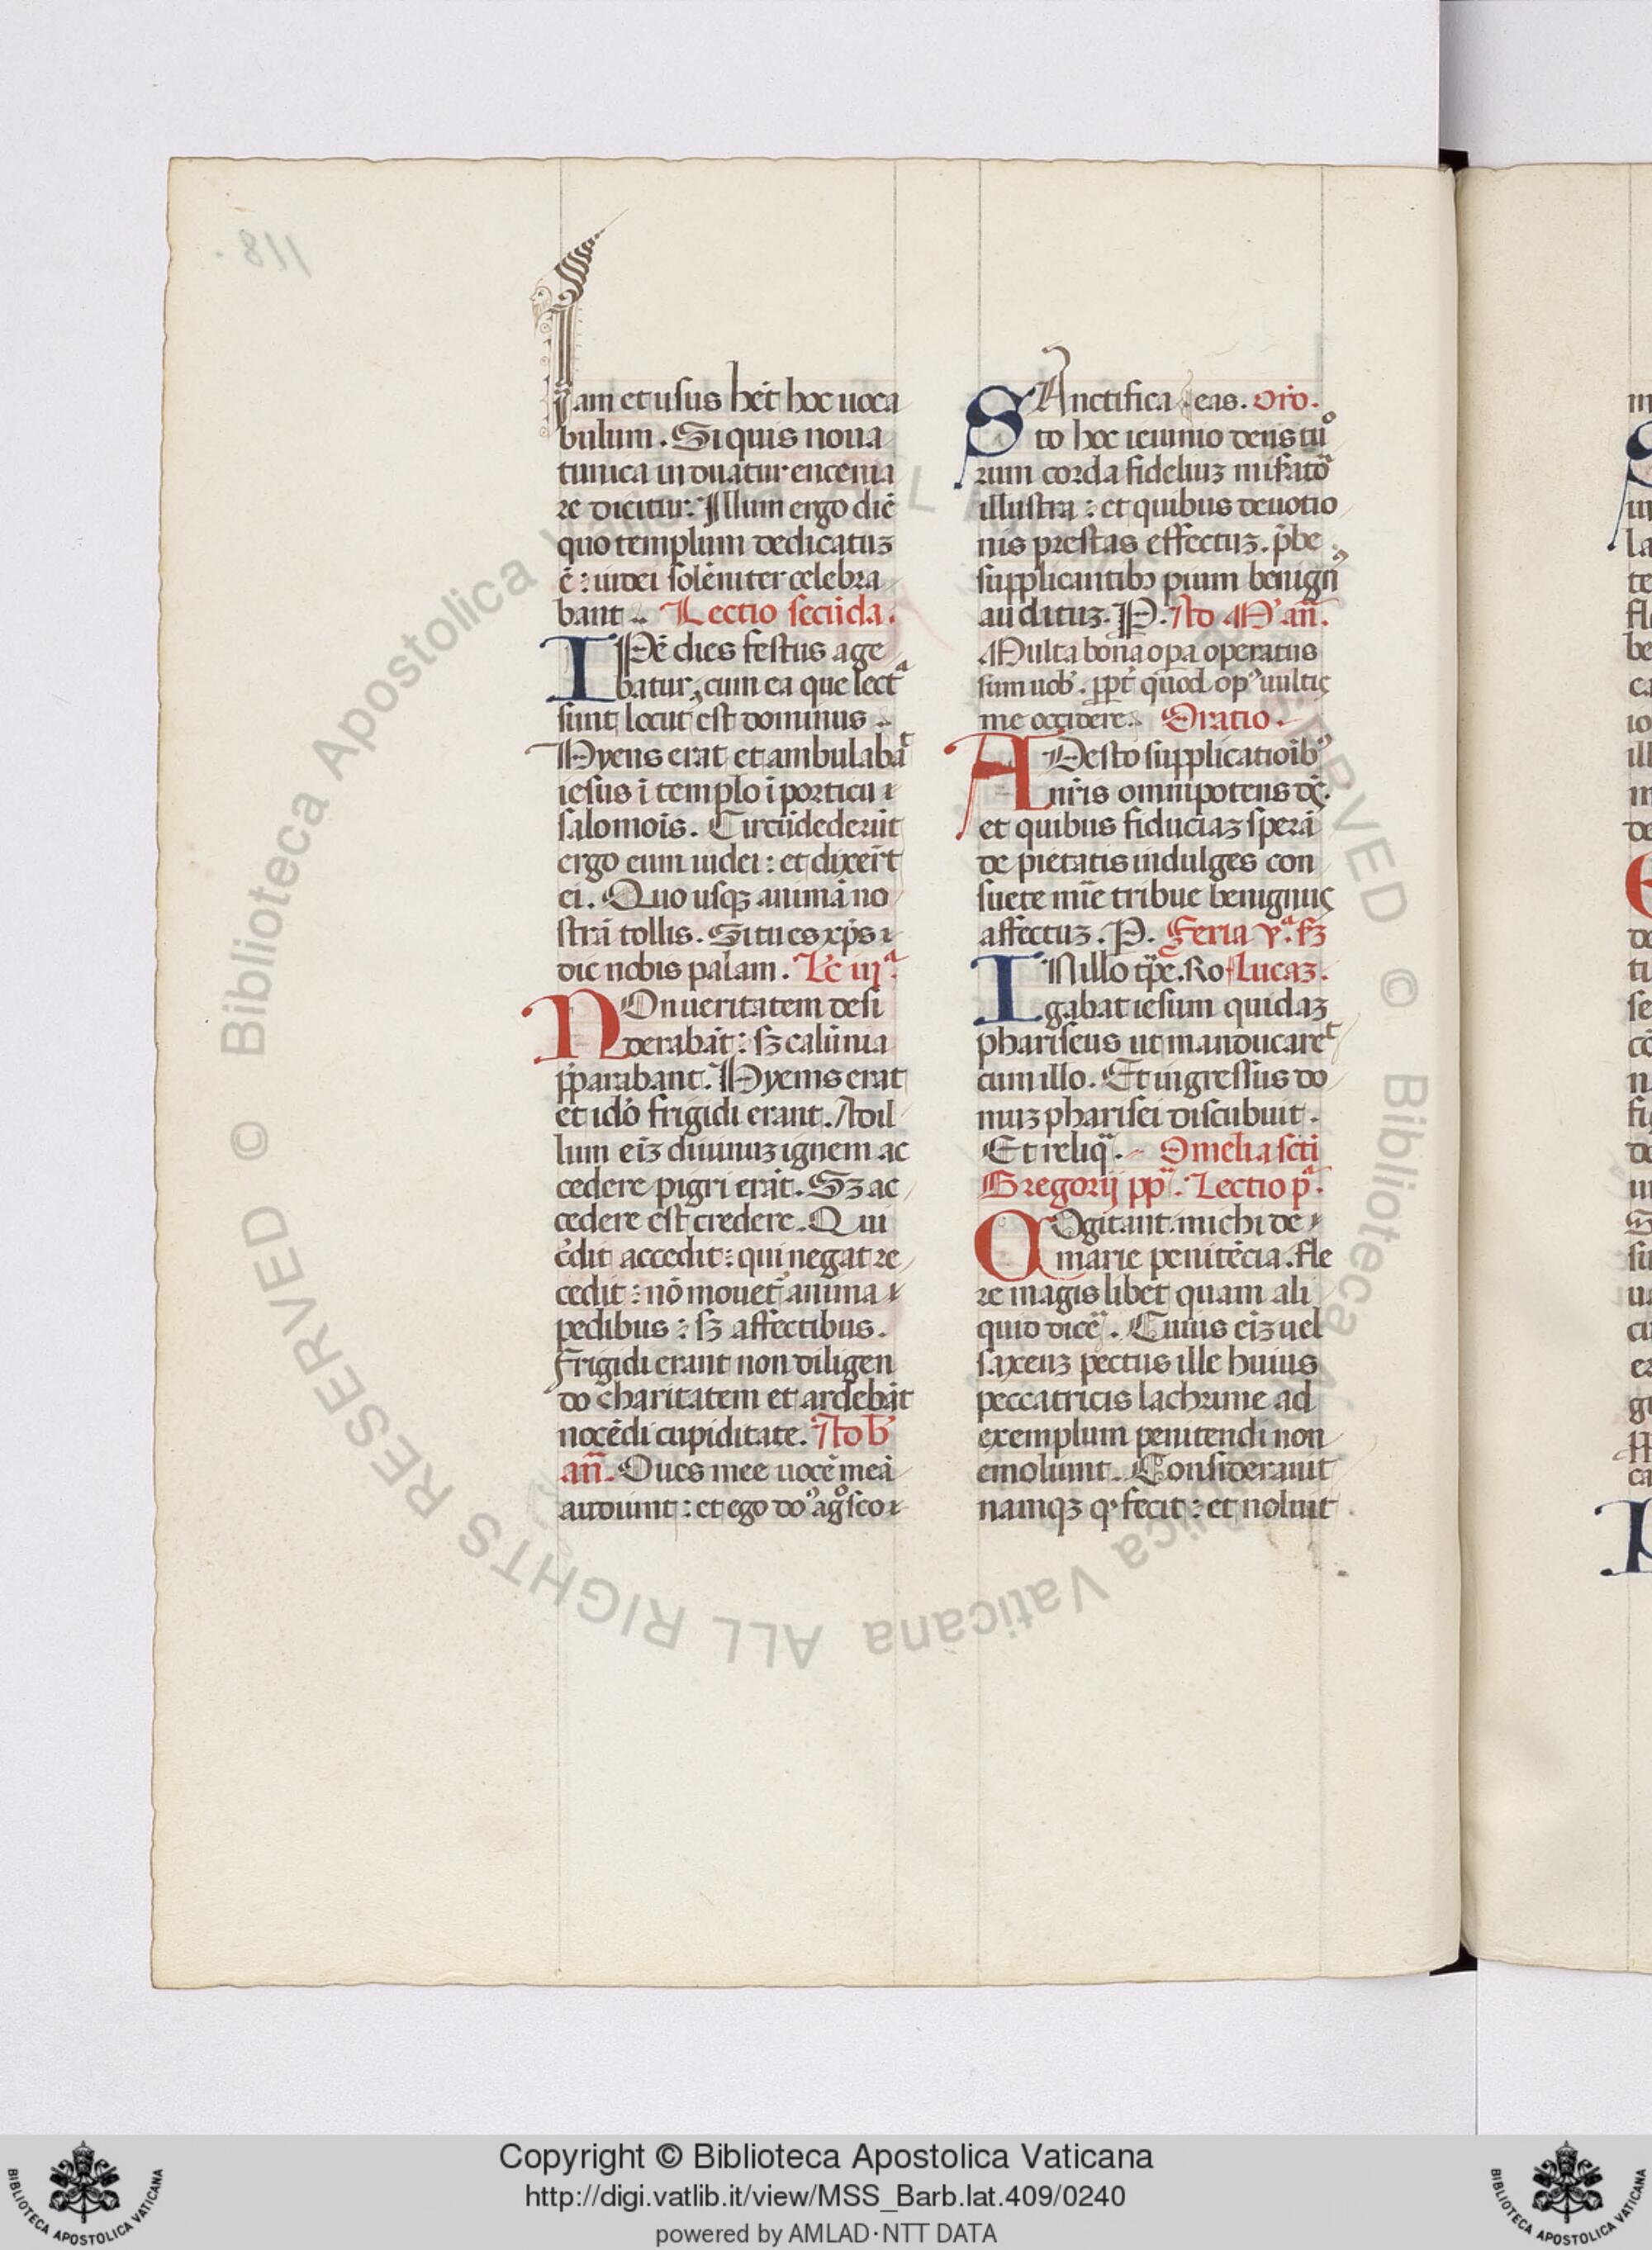 Iam et usus hēt hoc uoca
bulum. Si quis noua
tunica induatur encenia
re dicitur. Illum ergo diē
quo templum dedicatuꝫ
ē: iudei solēniter celebra
bant. Lectio secūda.
IPē dies festus age
batur, cum ea que lectᵃ
sunt locut᷒ est dominus.
Hyens erat et ambulabaᵗ
iesus ī templo ī porticu
salomoīs. Circūdederūt
ergo eum iudei: et dixerūt
ei. Quo usqꝫ animā no
strā tollis. Si tu es xp̄s
dic nobis palam. Lc̄ iijᵃ.
NOn ueritatem desi
derabāt: sꝫ calūnia
p̄parabant. Hyems erat
et idō frigidi erant. Ad il
lum eīꝫ diuinuꝫ ignem ac
cedere pigri erāt. Sꝫ ac
cedere est credere. Qui
c̄dit accedit: qui negat re
cedit: nō mouet᷑ anima
pedibus: sꝫ affectibus.
Frigidi erant non diligen
do charitatem et ardebāt
nocēdi cupiditate. Ad b̄
an̄. Oues mee uocē meā
audiunt: et ego doꝰ agᵒsco
SAnctifica. eas. Orō.
to hoc ieiunio deus tuᵒ
rum corda fideliuꝫ miƥatoᷓ
illustra: et quibus deuotio
nis prestas effectuꝫ. p̄be
supplicantibꝫ pium benignꝰ
audituꝫ. P. Ad M. an̄.
Multa bona oꝑa operatus
sum uob̄. ꝓpt̄ quod opꝰ uultis
me occidere. Oratio.
ADesto supplicatiōibꝰ
nr̄is omnipotens dꝰ.
et quibus fiduciaꝫ sperā
de pietatis indulges con
suete mīe tribue benignus
affectuꝫ. P. Feria vᵃ. ẜꝫ
INillo tp̄e. Ro Lucaꝫ.
gabat iesum quidaꝫ
phariseus ut manducareᵗ
cum illo. Et ingressus do
muꝫ pharisei discubuit.
Et reliqᷓ. Omelia sc̄ti
Gregorij pp̄. Lectio pᵃ.
COgitanti michi de
marie penitēcia. fle
re magis libet quam ali
quid dicē. Cuius eīꝫ uel
saxeuꝫ pectus ille huius
peccatricis lachrime ad
exemplum penitendi non
emoliunt. Considerauit
namqꝫ q fecit: et noluit
118.
Copyright © Biblioteca Apostolica Vaticana
http://digi.vatlib.it/view/MSS_Barb.lat.409/0240
powered by AMLAD·NTT DATA
© Biblioteca Apostolica Vaticana ALL RIGHTS RESERVED
BIBLIOTECA APOSTOLICA VATICANA
BIBLIOTECA APOSTOLICA VATICANA